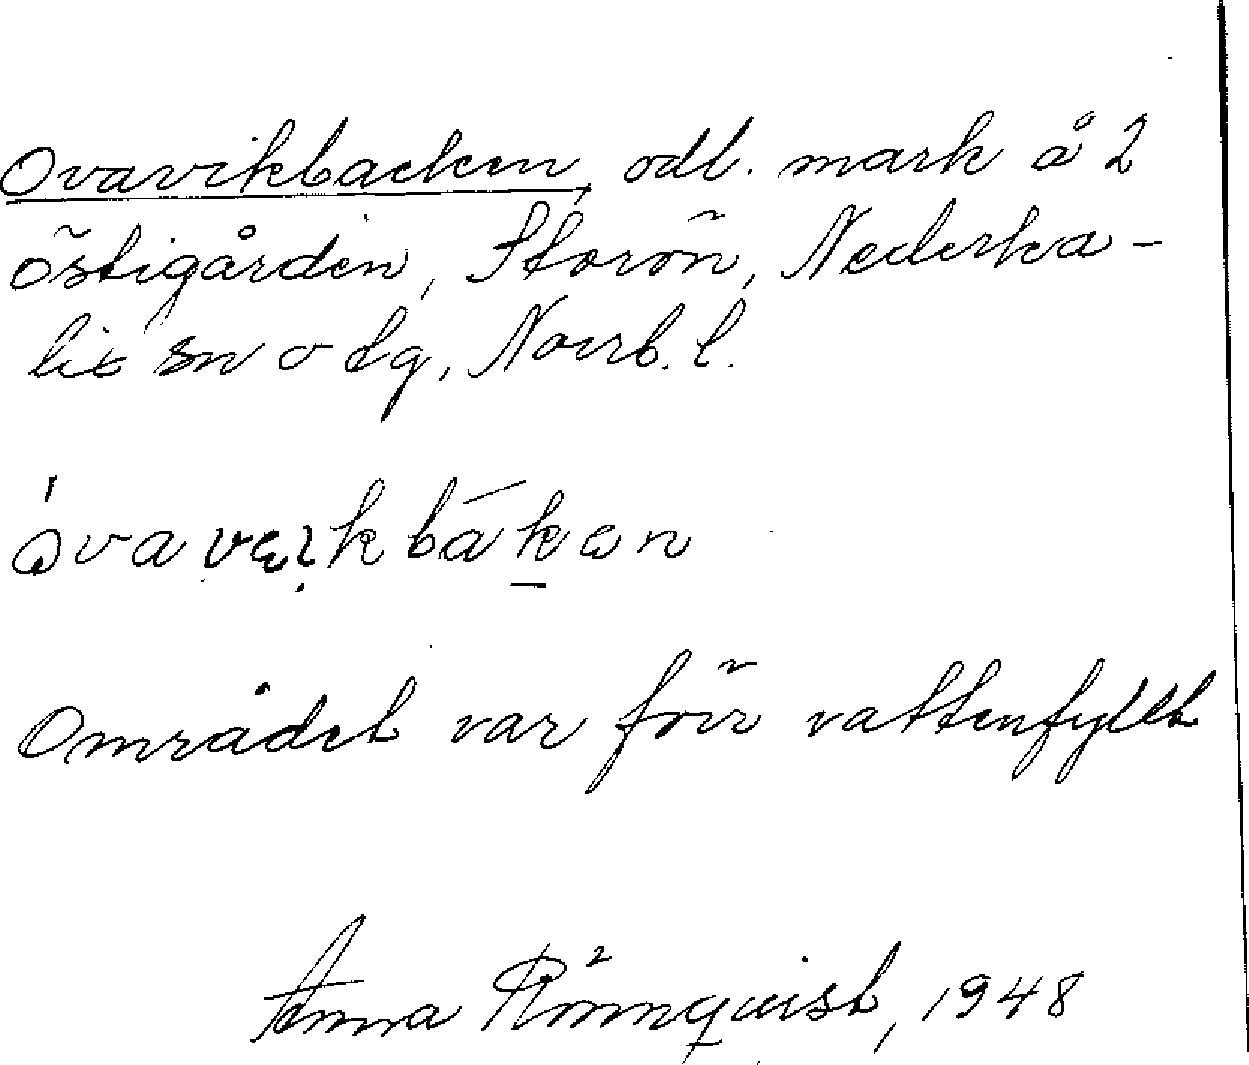 Ovavikbacken, odl. mark å 2
östigården, Storön, Nederka-
lix sn o tg, Norrb. l.
óvavεıkbákən
Området var förr vattenfyllt
Anna Rönnqvist, 1948